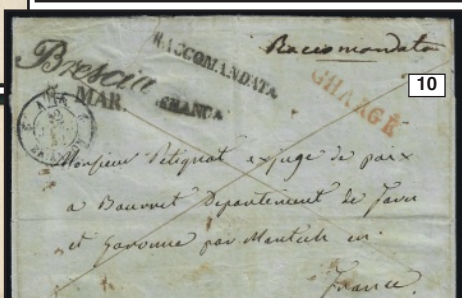 Raccomandata
RACCOMANDATA
Brescia
MAR.
FRANCA
CHARGÉ
10
Monsieur Petignat exjuge de paix
a Bourret Departement de Tarn
et Garonne par Montech en
France.